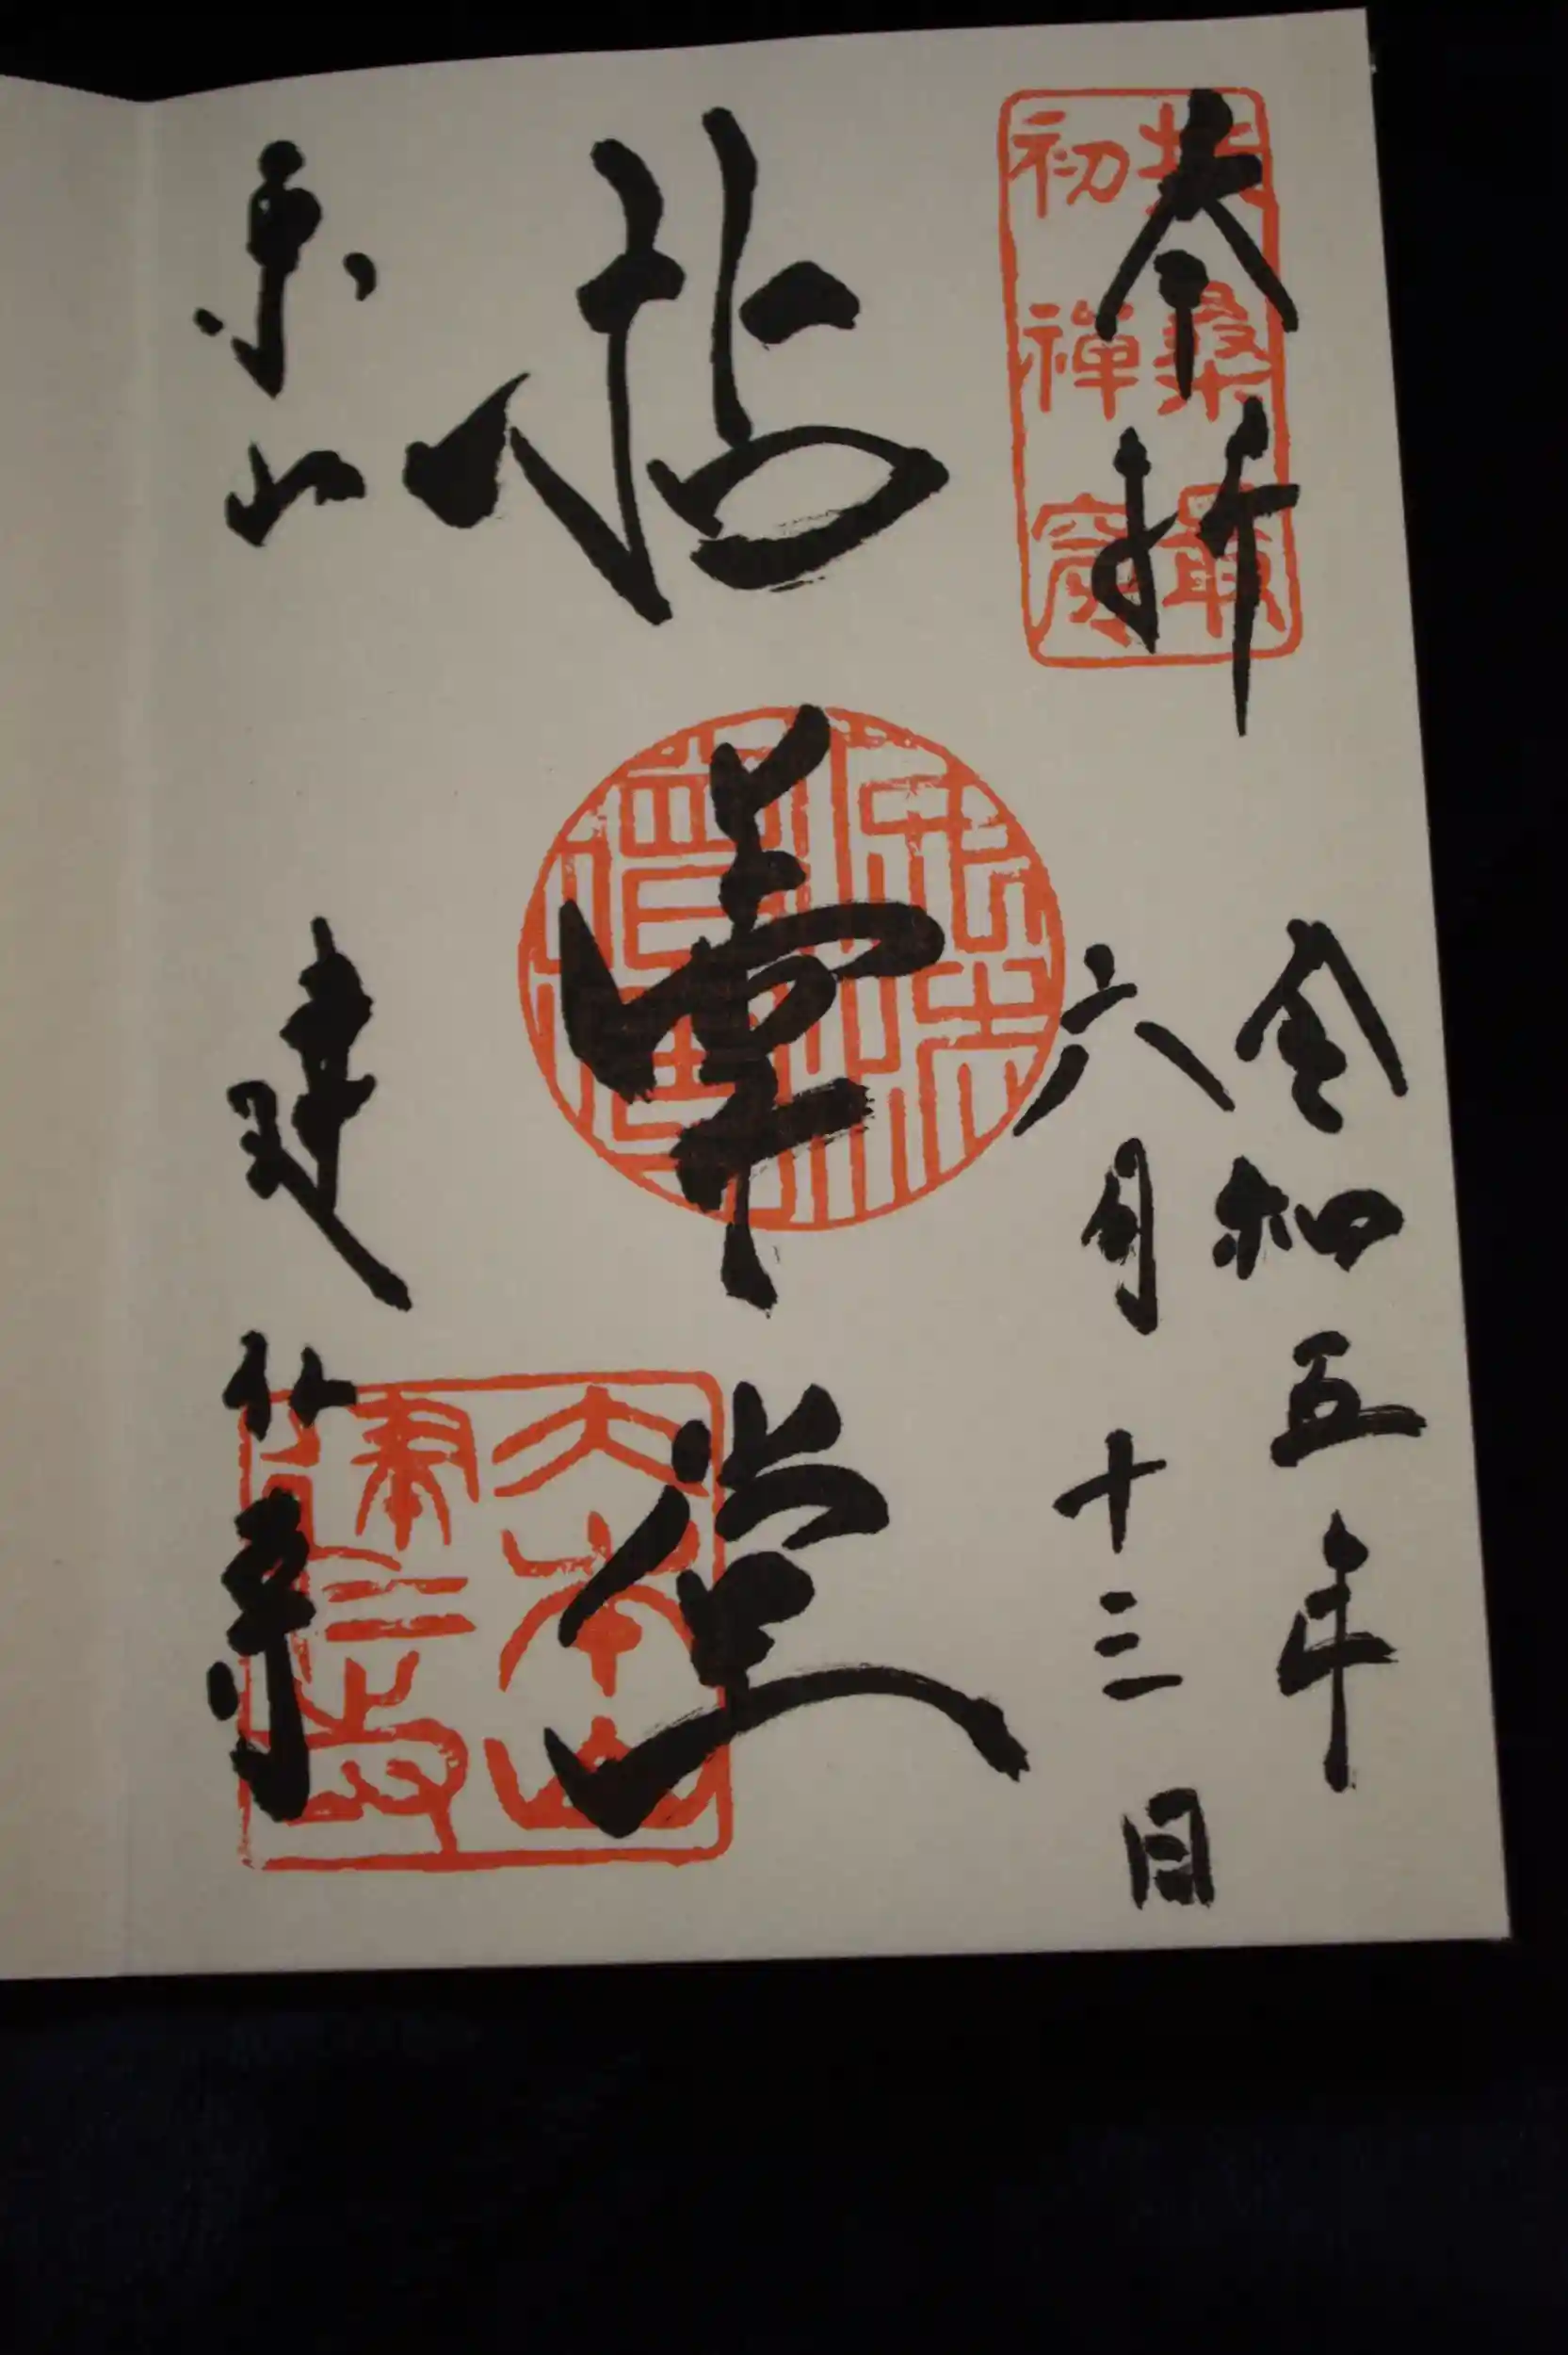 奉拝
扶桑最
初禅窟
令和五年
六月十三日
拈華堂
大本山
建仁寺
東山
建仁寺